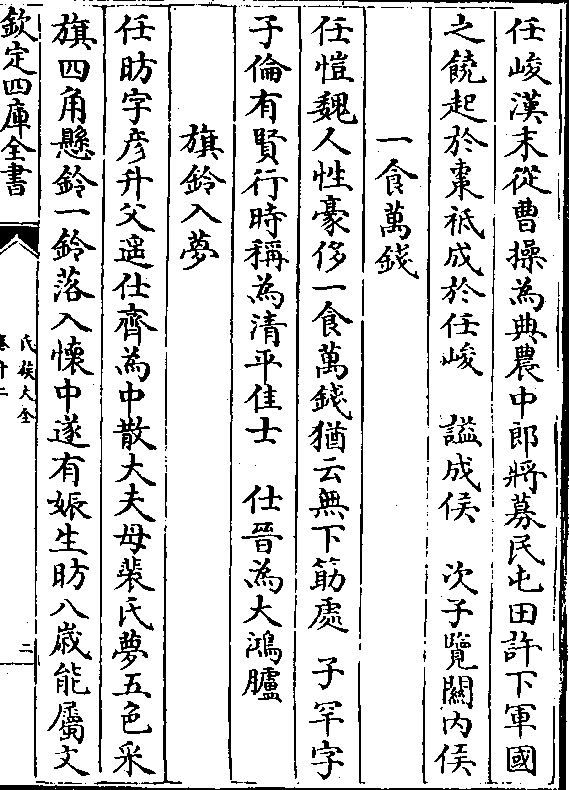 任峻漢末從曹操為典農中郎將募民屯田許下軍國
之饒起於棗祗成於任峻　謚成侯　次子覽關內侯
一食萬錢
任愷魏人性豪侈一食萬錢猶云無下筯處　子罕字
子倫有賢行時稱為清平佳士　仕晉為大鴻臚
旗鈴入夢
任昉字彥升父遥仕齊為中散大夫母裴氏夢五色采
旗四角懸鈴一鈴落入懷中遂有娠生昉八歲能屬文
欽定四庫全書
氏族大全
卷十二
二